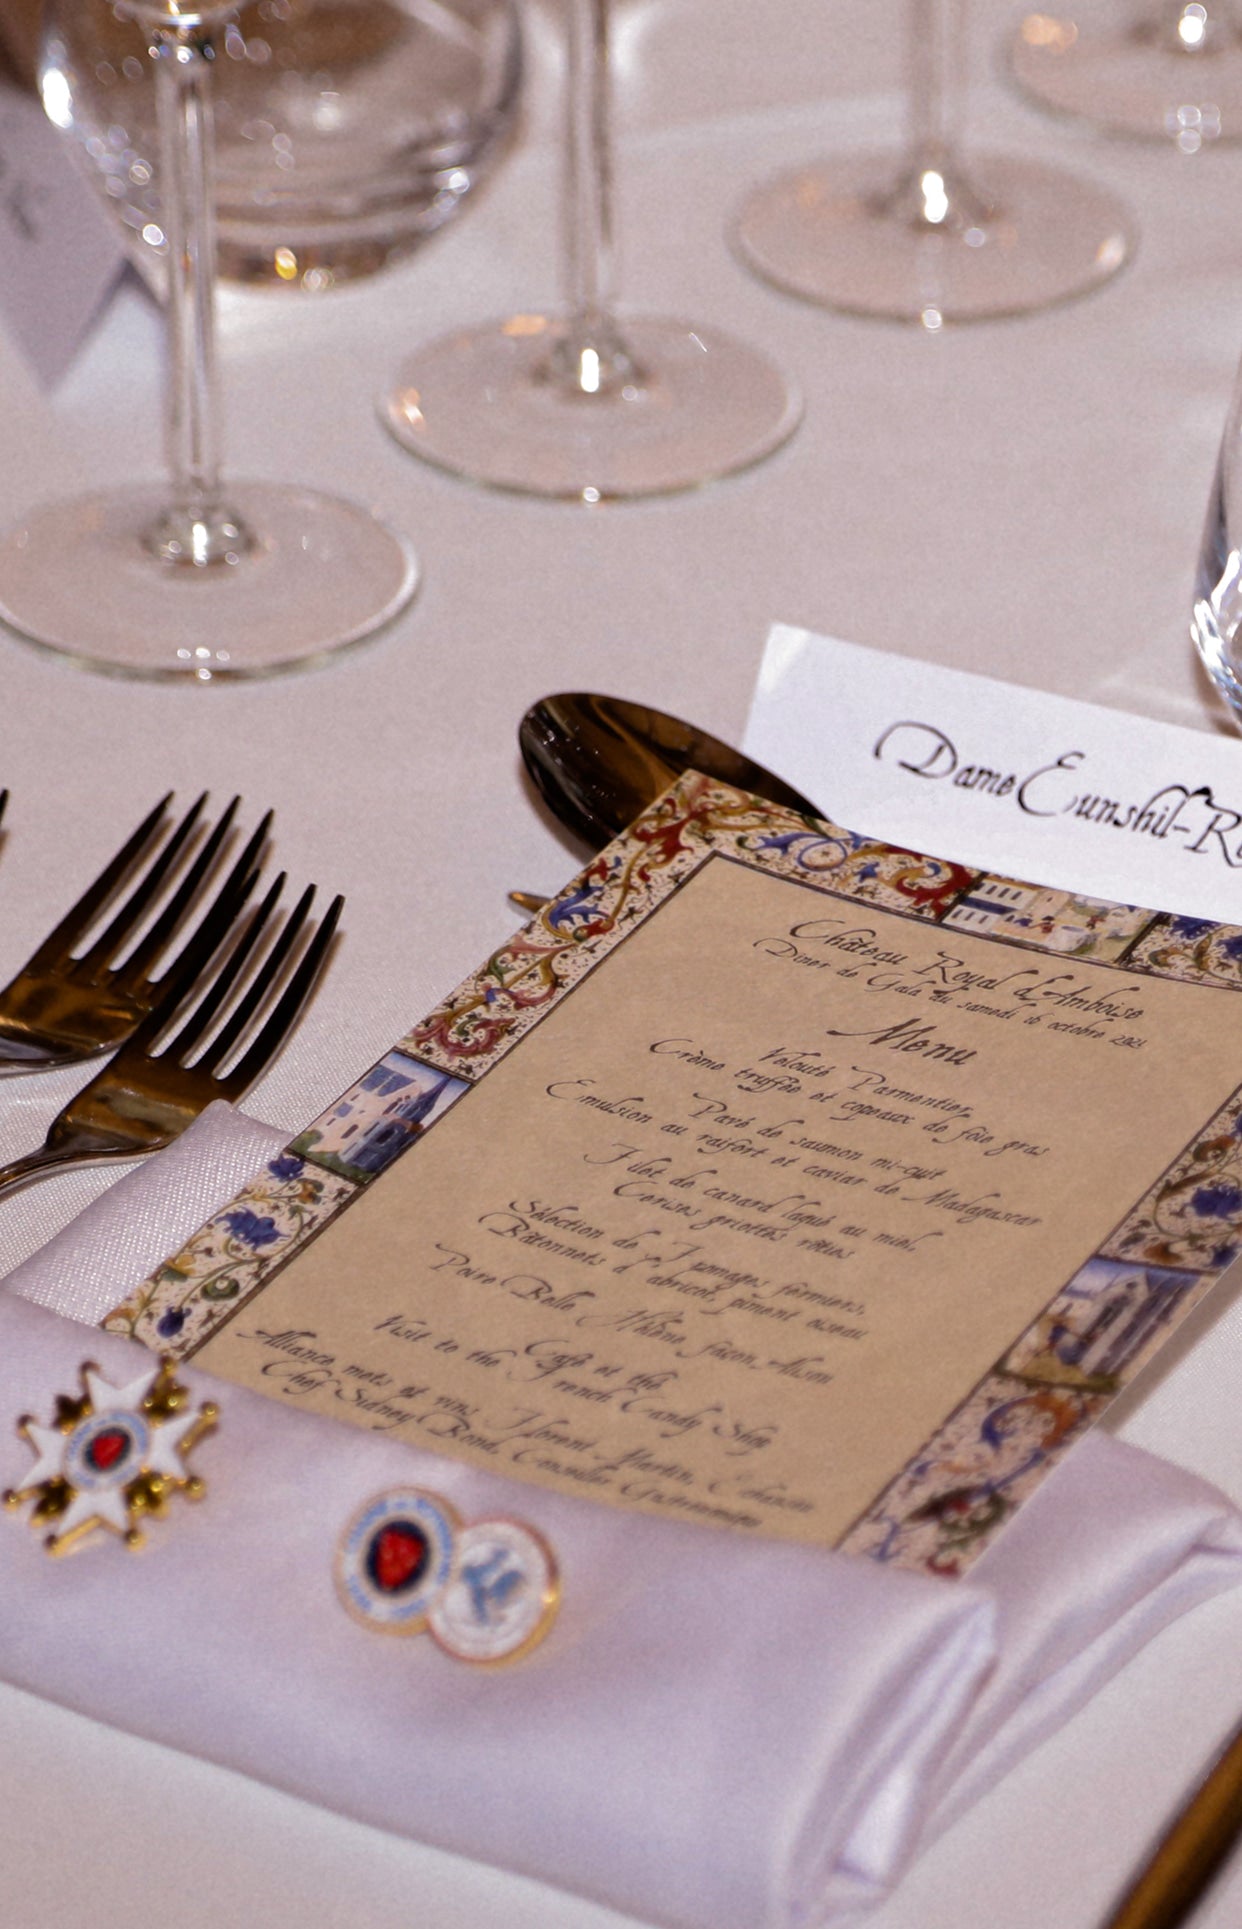 Dame Eunshil-R
Château Royal d'Amboise
Diner de Gala du samedi 16 octobre 2021
Menu
Velouté Parmentier,
Crème truffée et copeaux de foie gras
Pavé de saumon mi-cuit
Emulsion au raifort et caviar de Madagascar
Filet de canard laqué au miel,
Cerises griottes rôties
Sélection de Fromages fermiers,
Bâtonnets d'abricot, piment oiseau
Poire Belle Hélène façon Alison
Café et thé
Visit to the French Candy Shop
Alliance mets et vins Florent Martin, Echanson
Chef Sidney Bond, Conseiller Gastronomique